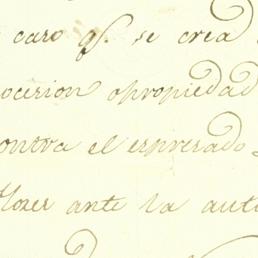 caro q.e se crea
ocesion opropiedad
ontra el espresado
Hozes ante la auto